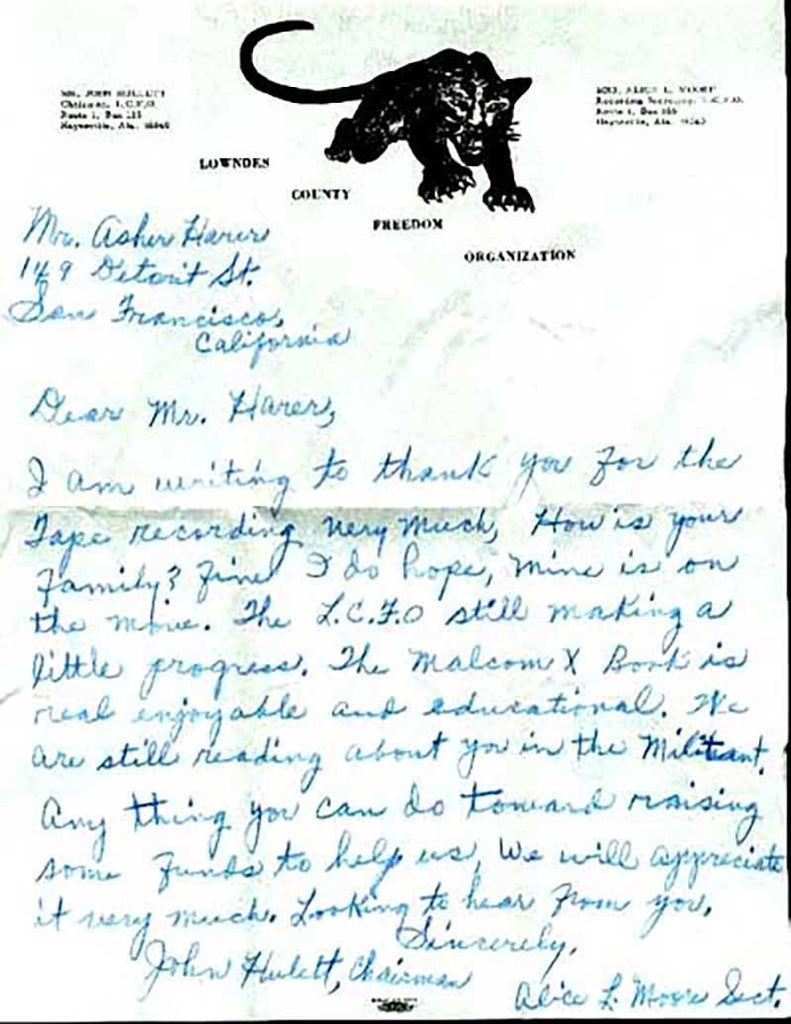 MR. JOHN HULETT
Chairman, L.C.F.O.
Route 1, Box 125
Hayneville, Ala.
MRS. ALICE L. MOORE
Recording Secretary, L.C.F.O.
Route 1, Box
Hayneville, Ala.
LOWNDES
COUNTY
FREEDOM
ORGANIZATION
Mr. Asher Harer
149 Detorit St.
San Francisco,
California
Dear Mr. Harer,
I am writing to thank you for the
Tape recording very much, How is your
Family? Fine I do hope, mine is on
the move. The L.C.F.O still making a
little progress. The Malcom X Book is
real enjoyable and educational. We
are still reading about you in the Militant.
Any thing you can do toward raising
some funds to help us, We will appreciate
it very much. Looking to hear from you.
Sincerely,
John Hulett, Chairman
Alice L. Moore Sect.